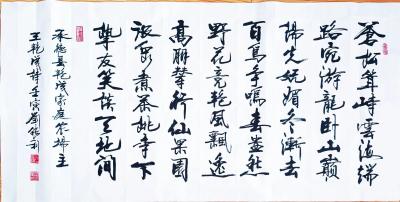 苍松耸峙云海端
路宛游龙卧山巅
扫光妩媚冬渐去
百鸟争鸣春盎然
野花竞艳风飘逸
高朋攀行仙果园
汲泉煮茶桃李下
挚友笑谈天地间
承德县乾成家庭农场主
王乾成诗壬寅